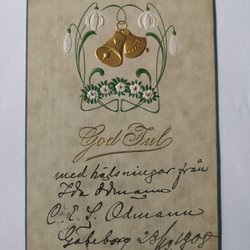 God Jul
med hälsningar från
Ida Ödmann
C. E. S. Ödmann
Göteborg 23/12 1905